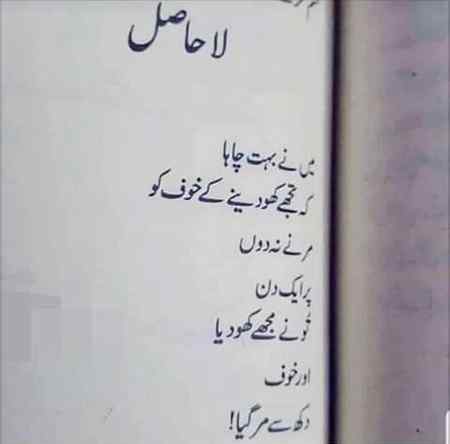 لا حاصل
میں نے بہت چاہا
کہ تجھے کھو دینے کے خوف کو
مرنے نہ دوں
پر ایک دن
تُو نے مجھے کھو دیا
اور خوف
دکھ سے مر گیا!